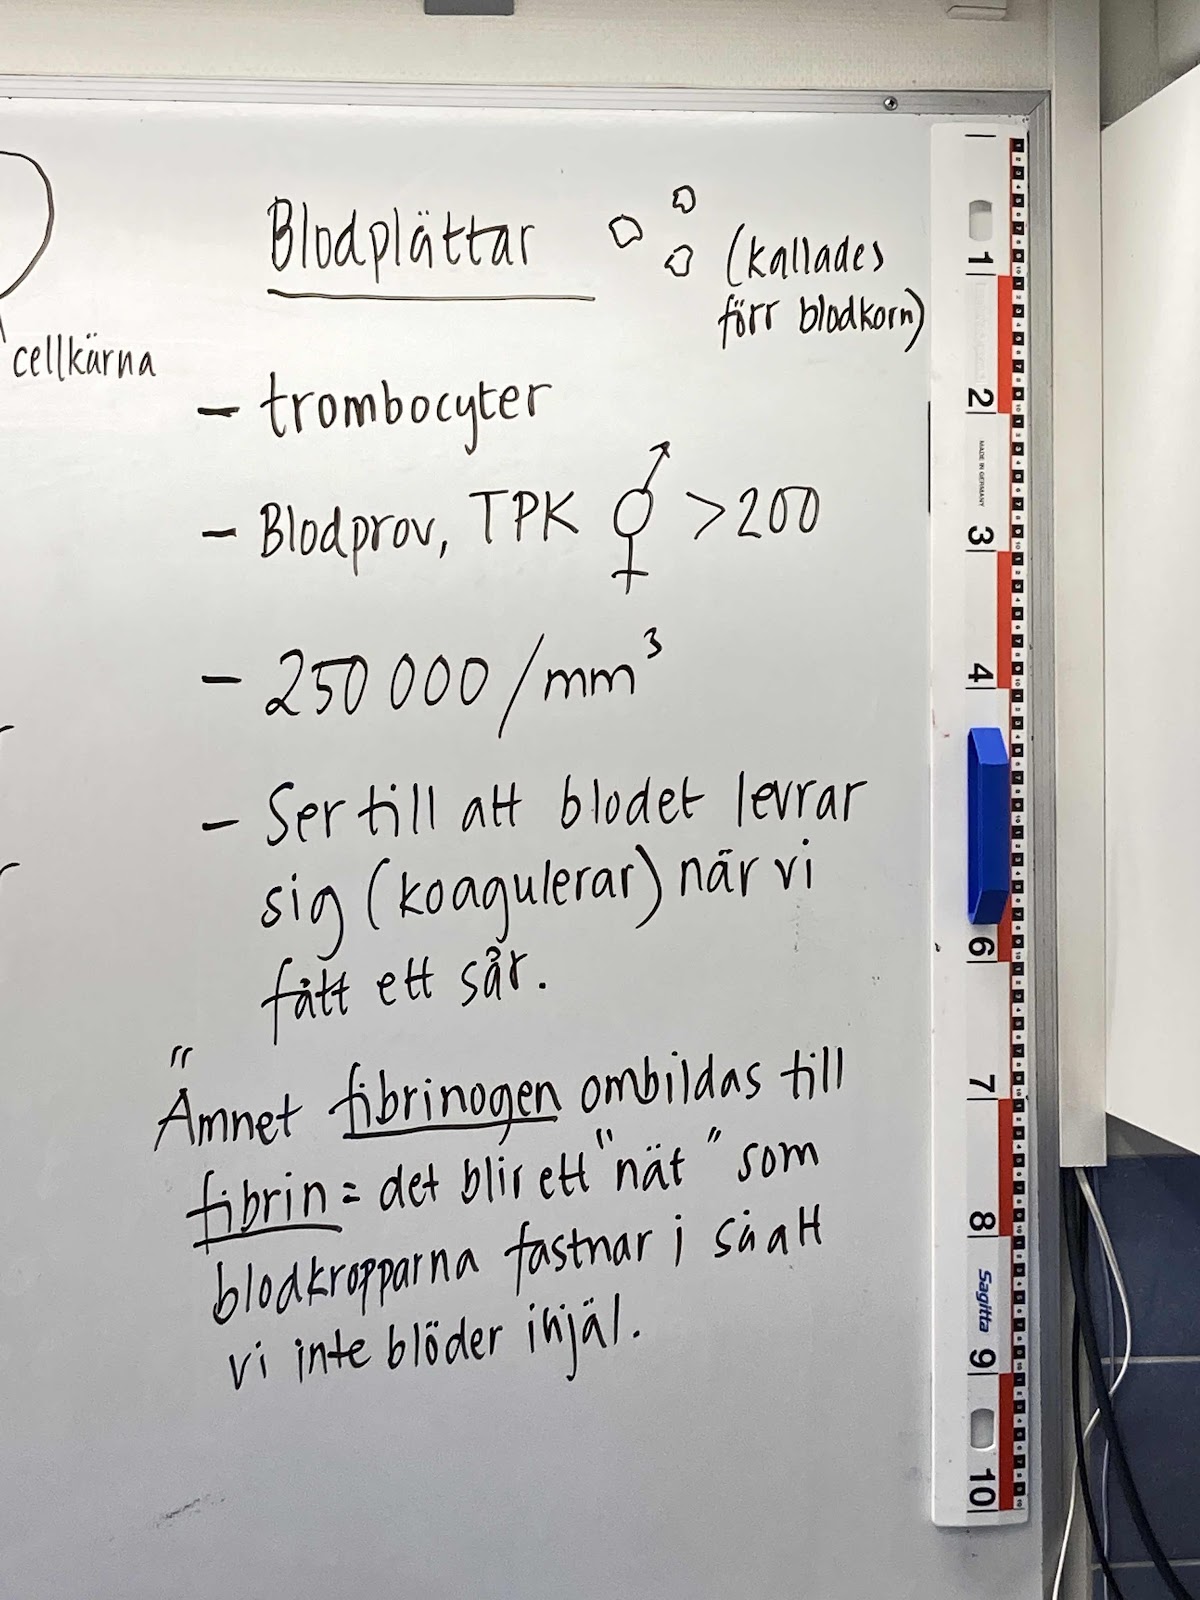 Blodplättar
(kallades
förr blodkorn)
cellkärna
- trombocyter
- Blodprov, TPK ⚥ >200
- 250 000 /mm³
- Ser till att blodet levrar
sig (koagulerar) när vi
fått ett sår.
Ämnet fibrinogen ombildas till
fibrin = det blir ett "nät" som
blodkropparna fastnar i så att
vi inte blöder ihjäl.
1
2
MADE IN GERMANY
3
4
6
7
8
Sagitta
9
10